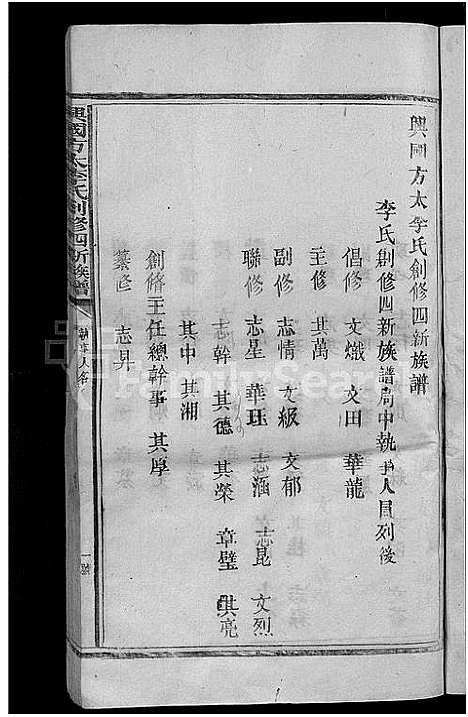 興國方太李氏創修四新族譜
李氏創修四新族譜局中執事人員列後
倡修 文熾 文田 華龍
主修 其萬
副修 志情 文級 文郁
聯修 志星 華珏 志涵 志昆 文烈
志幹 其德 其榮 章璧 其亮
其中 其湘
創脩主任總幹事 其厚
纂修 志昇
興國方太李氏創修四新族譜
執事人名
FamilySearch